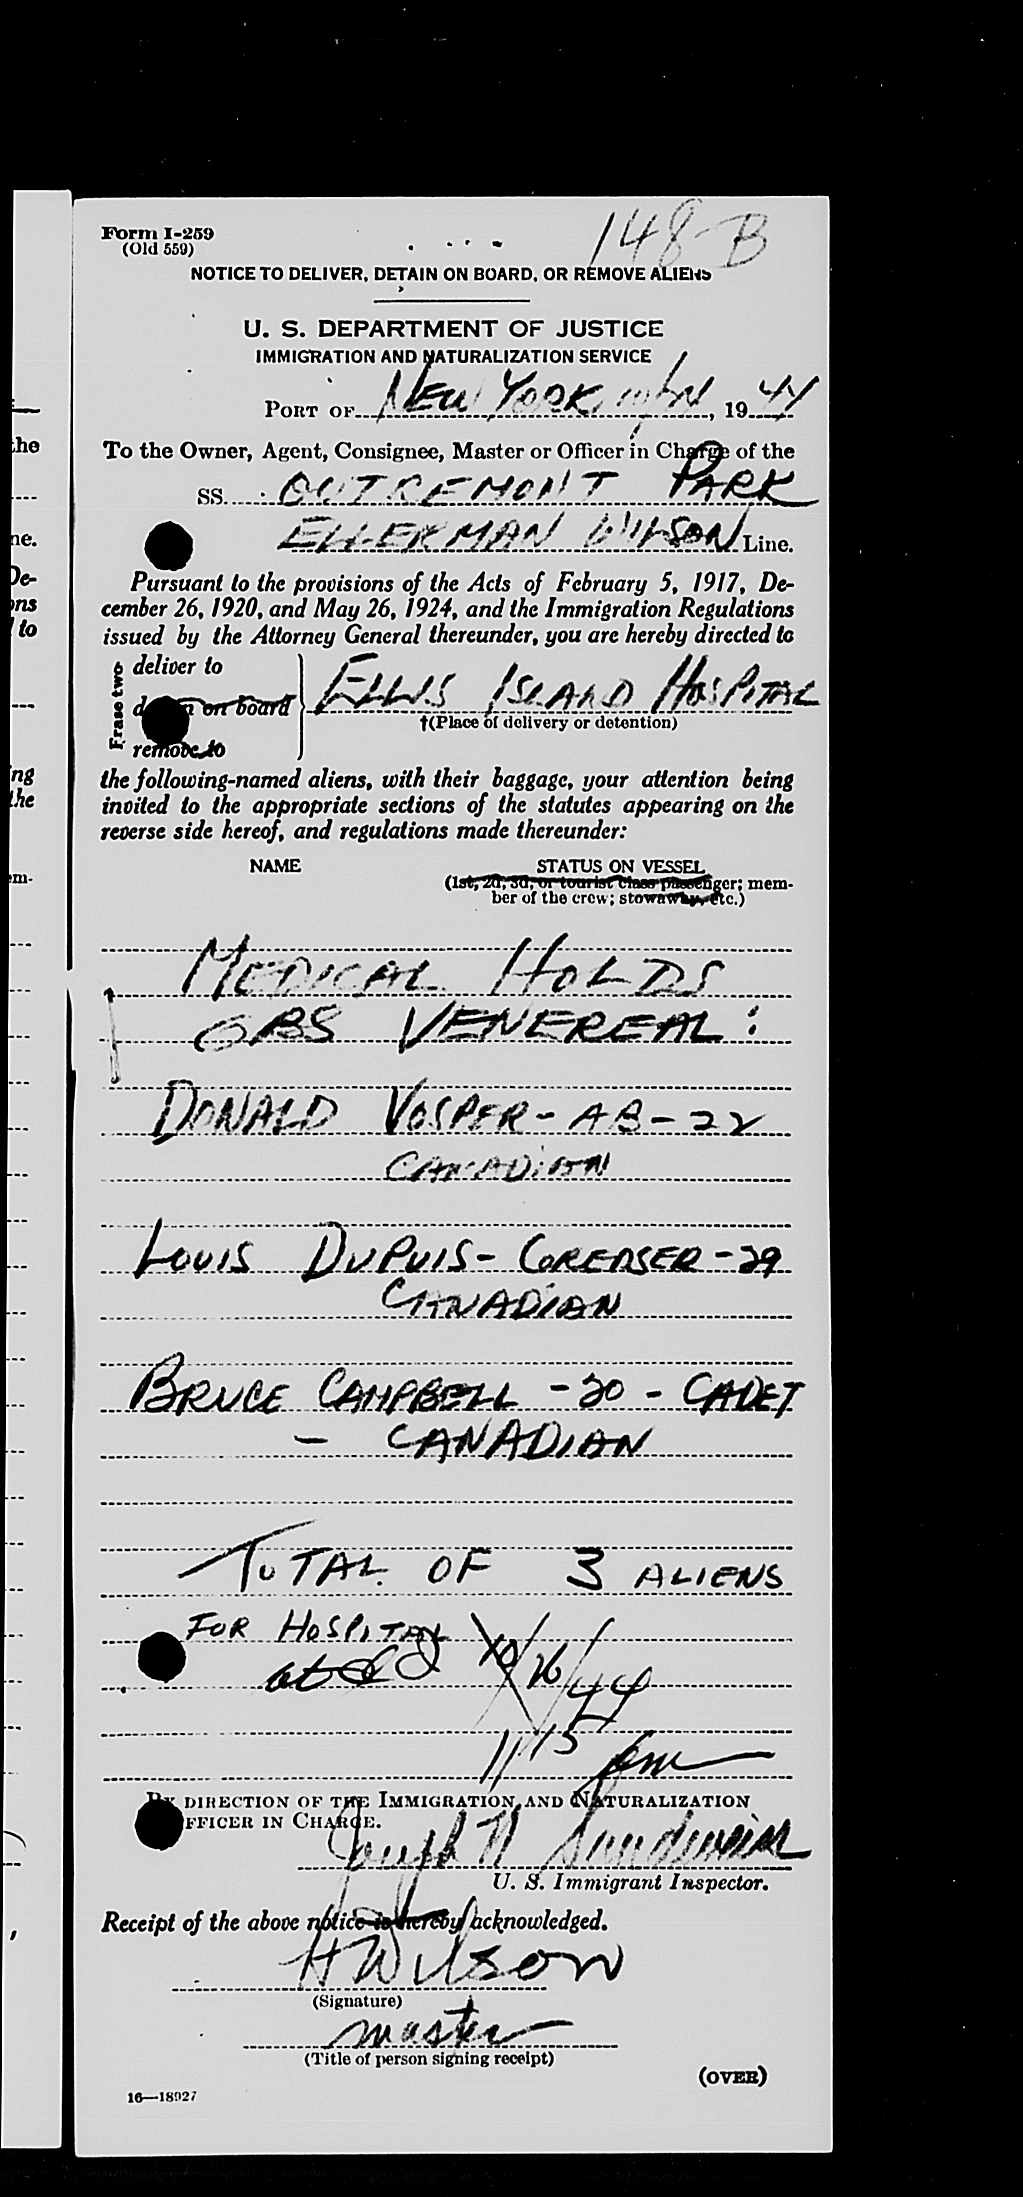 148-B
Form I-259
(Old 559)
NOTICE TO DELIVER, DETAIN ON BOARD, OR REMOVE ALIENS
U. S. DEPARTMENT OF JUSTICE
IMMIGRATION AND NATURALIZATION SERVICE
PORT OF NEW YORK, 1944
To the Owner, Agent, Consignee, Master or Officer in Charge of the
SS. OUTREMONT PARK
ELLERMAN WILSON Line.
Pursuant to the provisions of the Acts of February 5, 1917, De-
cember 26, 1920, and May 26, 1924, and the Immigration Regulations
issued by the Attorney General thereunder, you are hereby directed to
Erase two
deliver to
on board ELLIS ISLAND HOSPITAL
†(Place of delivery or detention)
remove to
the following-named aliens, with their baggage, your attention being
invited to the appropriate sections of the statutes appearing on the
reverse side hereof, and regulations made thereunder:
NAME STATUS ON VESSEL
(1st, 2d, 3d, or tourist class passenger; mem-
ber of the crew; stowaway, etc.)
MEDICAL HOLDS
OBS VENEREAL:
DONALD VOSPER - AB - 22
CANADIAN
LOUIS DUPUIS - GREASER - 29
CANADIAN
BRUCE CAMPBELL - 20 - CADET
- CANADIAN
TOTAL OF 3 ALIENS
FOR HOSPITAL
10/26/44
1115 pm
BY DIRECTION OF THE IMMIGRATION AND NATURALIZATION
OFFICER IN CHARGE.
Joseph N
U. S. Immigrant Inspector.
Receipt of the above notice is hereby acknowledged.
H Wilson
(Signature)
master
(Title of person signing receipt)
(OVER)
16—18927